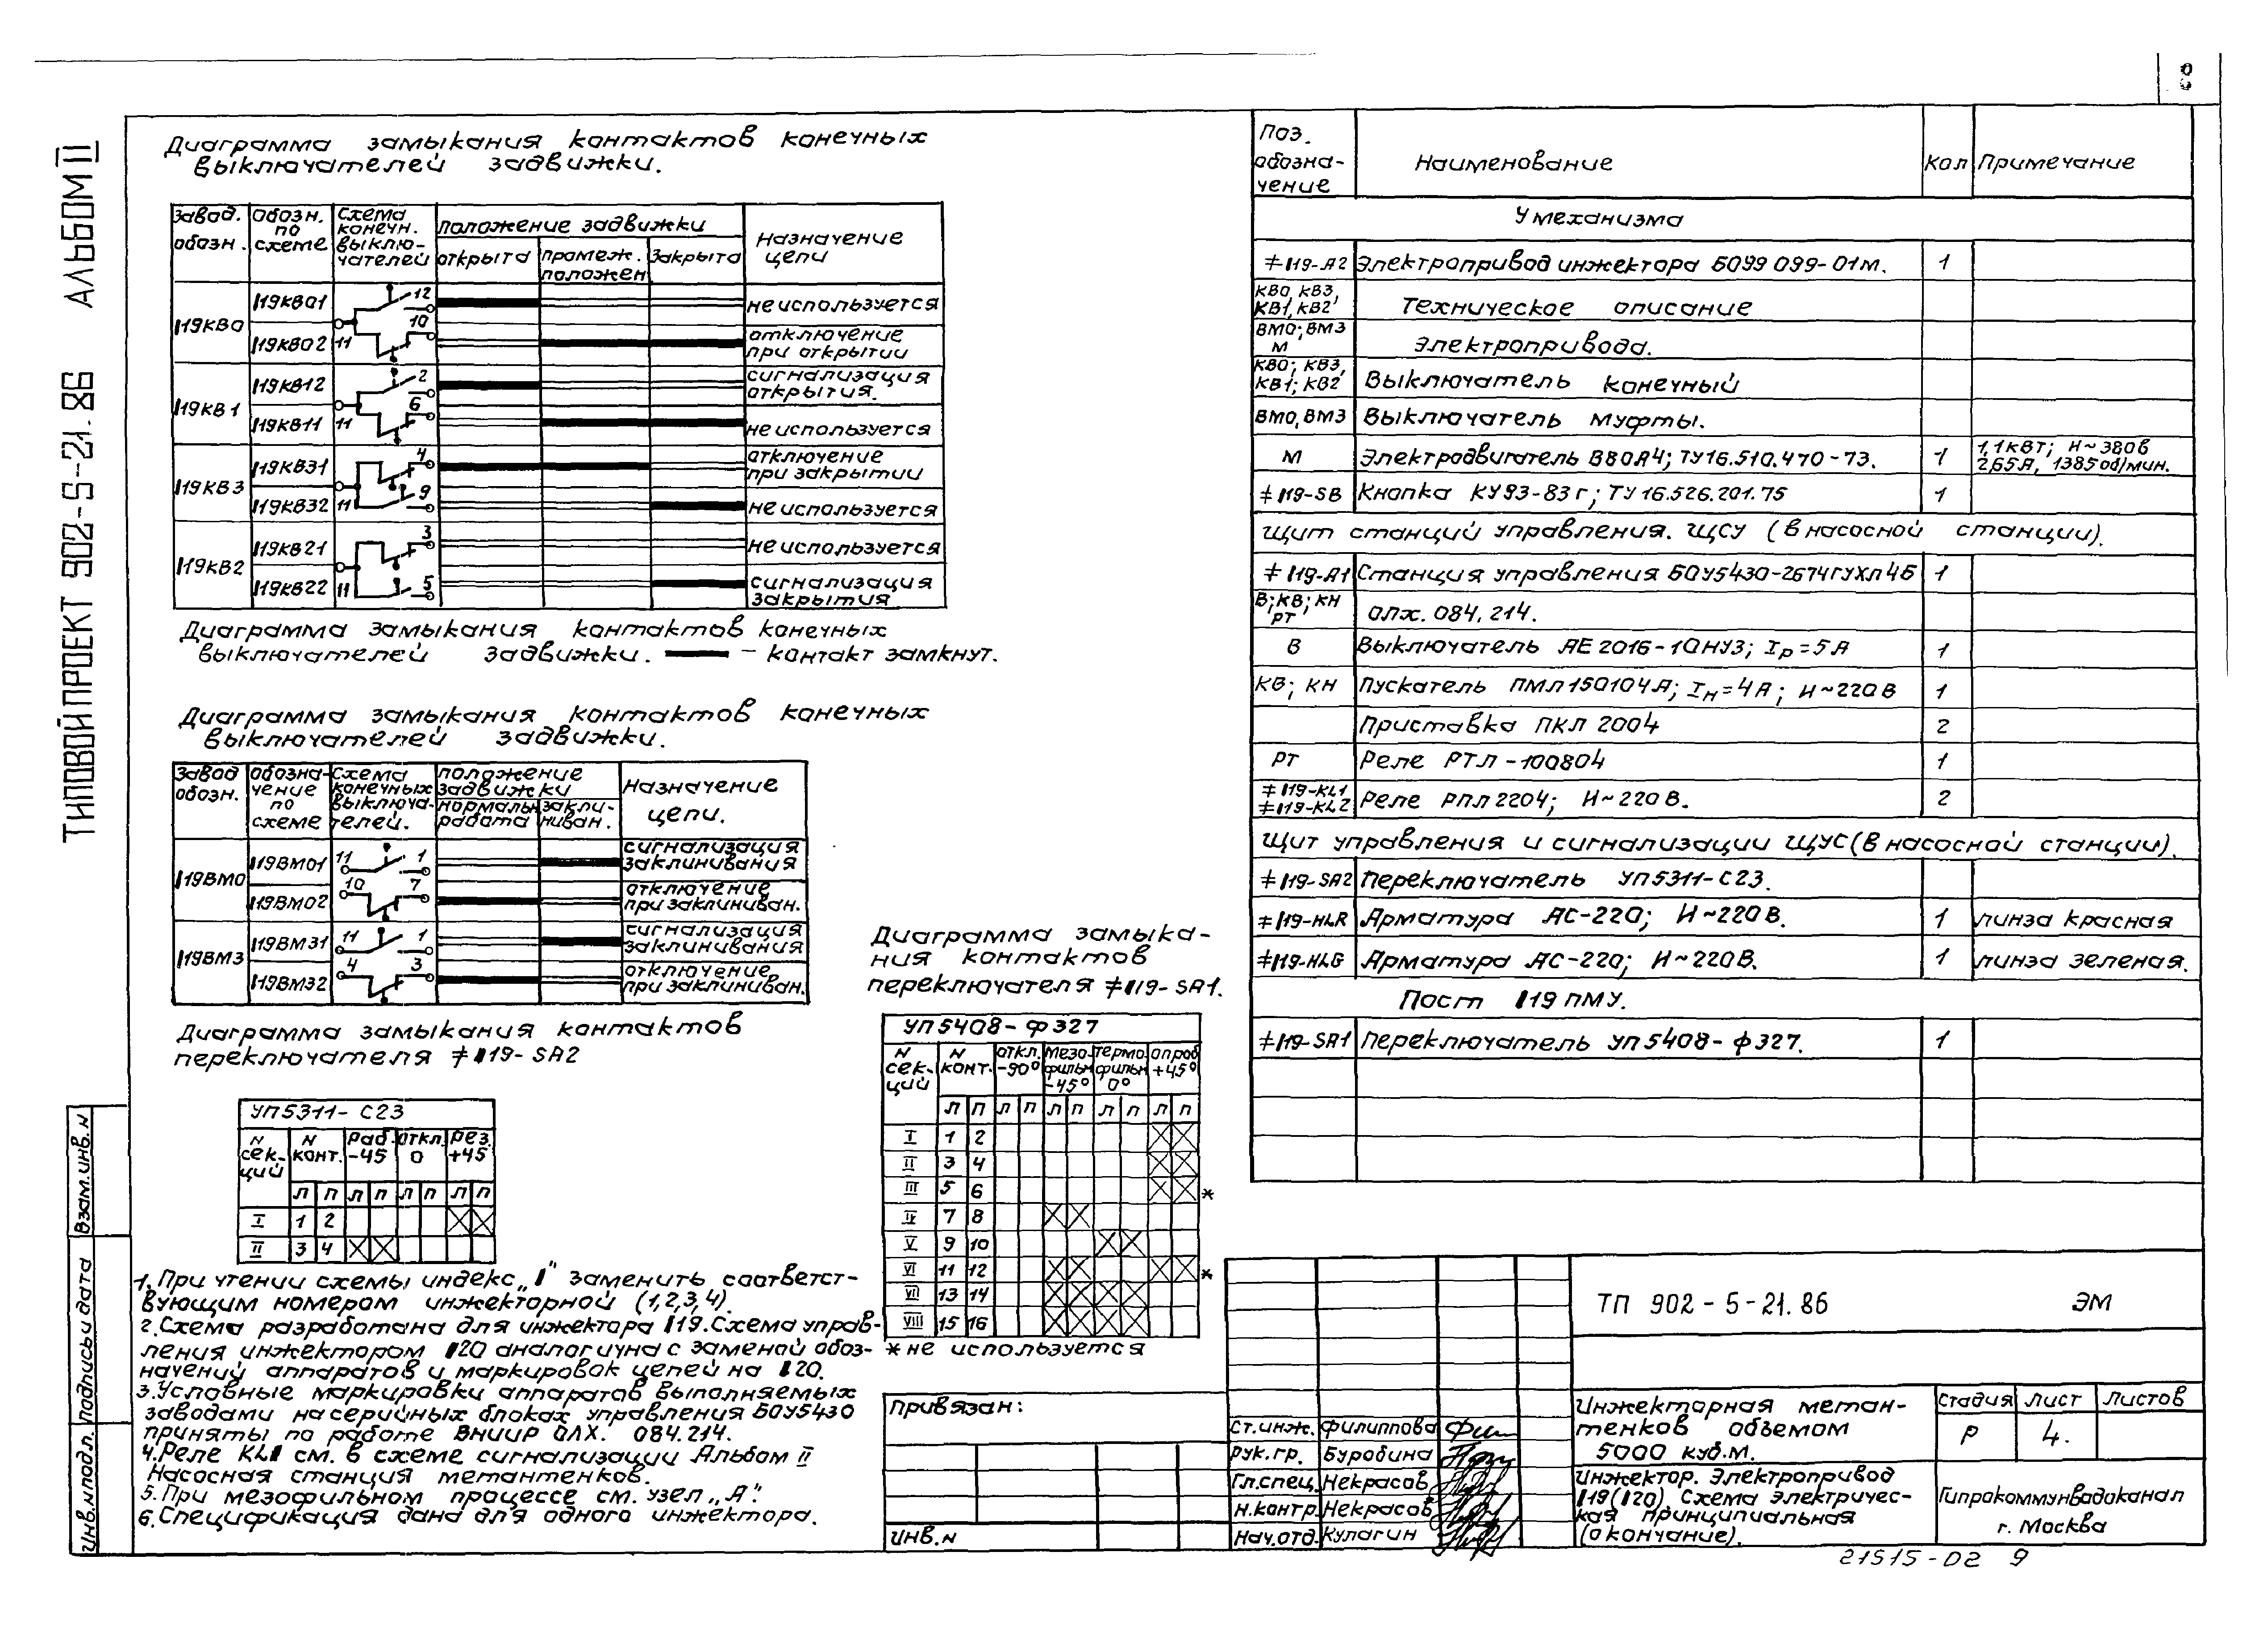 ТИПОВОЙ ПРОЕКТ 902-5-21.86 АЛЬБОМ II
Диаграмма замыкания контактов конечных
выключателей задвижки.
Завод. обозн.
Обозн. по схеме
Схема конечн. выключателей
положение задвижки
открыта
промеж. положен
Закрыта
Назначение цепи
I19КВО
I19КВО1
12
не используется
10
I19КВО2
11
отключение при открытии
I19КВ1
I19КВ12
2
сигнализация открытия.
6
I19КВ11
11
не используется
I19КВ3
I19КВ31
4
отключение при закрытии
I19КВ32
11
9
не используется
I19КВ2
I19КВ21
3
не используется
I19КВ22
11
5
сигнализация закрытия
Диаграмма замыкания контактов конечных
выключателей задвижки. — контакт замкнут.
Диаграмма замыкания контактов конечных
выключателей задвижки.
Завод обозн.
обозначение по схеме
Схема конечных выключателей.
положение задвижки
нормальн работа
заклиниван.
Назначение цепи.
I19ВМО
I19ВМО1
11 1
сигнализация заклинивания
I19ВМО2
10 7
отключение при заклиниван.
I19ВМ3
I19ВМ31
11 1
сигнализация заклинивания
I19ВМ32
4 3
отключение при заклиниван.
Диаграмма замыкания контактов
переключателя ≠I19-SA2
УП5311-С23
N секций
N конт.
Раб. -45
Откл. 0
Рез. +45
Л П Л П Л П Л П
I 1 2
II 3 4
Диаграмма замыка-
ния контактов
переключателя ≠I19-SA1.
УП5408-Ф327
N секций
N конт.
откл. -90°
мезофильн -45°
термофильн 0°
опроб +45°
Л П Л П Л П Л П Л П
I 1 2
II 3 4
III 5 6 *
IV 7 8
V 9 10
VI 11 12 *
VII 13 14
VIII 15 16
* не используется
1. При чтении схемы индекс „I" заменить соответст-
вующим номером инжекторной (1,2,3,4).
2. Схема разработана для инжектора I19. Схема управ-
ления инжектором I20 аналогична с заменой обоз-
начений аппаратов и маркировок цепей на I20.
3. Условные маркировки аппаратов выполняемых
заводами на серийных блоках управления БОУ5430
приняты по работе ВНИИР ОЛХ. 084.214.
4. Реле KLI см. в схеме сигнализации Альбом II
Насосная станция метантенков.
5. При мезофильном процессе см. узел „А".
6. Спецификация дана для одного инжектора.
Поз. обозначение
Наименование
Кол
Примечание
У механизма
≠I19-А2 Электропривод инжектора Б099 099-01м. 1
КВО, КВ3, КВ1, КВ2 Техническое описание
ВМО; ВМ3 М Электропривода.
КВО; КВ3, КВ1; КВ2 Выключатель конечный
ВМО, ВМ3 Выключатель муфты.
М Электродвигатель В80А4; ТУ16.510.470-73. 1 1,1кВт; И~380в 2,65А, 1385об/мин.
≠I19-SB Кнопка КУ93-83г; ТУ16.526.201.75 1
Щит станций управления. ЩСУ (в насосной станции).
≠I19-А1 Станция управления БОУ5430-2674ГУХЛ4Б 1
В; КВ; КН РТ ОЛХ. 084.214.
В Выключатель АЕ2016-10НУ3; Iр=5А 1
КВ; КН Пускатель ПМЛ150104А; Iн=4А; И~220В 1
Приставка ПКЛ 2004 2
РТ Реле РТЛ-100804 1
≠I19-KL1 ≠I19-KL2 Реле РПЛ2204; И~220В. 2
Щит управления и сигнализации ЩУС (в насосной станции).
≠I19-SA2 Переключатель УП5311-С23.
≠I19-HLR Арматура АС-220; И~220В. 1 линза красная
≠I19-HLG Арматура АС-220; И~220В. 1 линза зеленая.
Пост I19 ПМУ.
≠I19-SA1 Переключатель УП5408-Ф327. 1
привязан:
инв.н
Ст.инж. Филиппова
рук.гр. Буробина
Гл.спец. Некрасов
н.контр. Некрасов
Нач.отд. Кулагин
ТП 902-5-21.86 ЭМ
Инжекторная метан-
тенков объемом
5000 куб.м.
Стадия Лист Листов
Р 4.
Инжектор. Электропривод
I19(I20). Схема электричес-
кая принципиальная
(окончание).
Гипрокоммунводоканал
г. Москва
21515-02 9
Взам.инв.н
Подпись и дата
Инв.н подл.